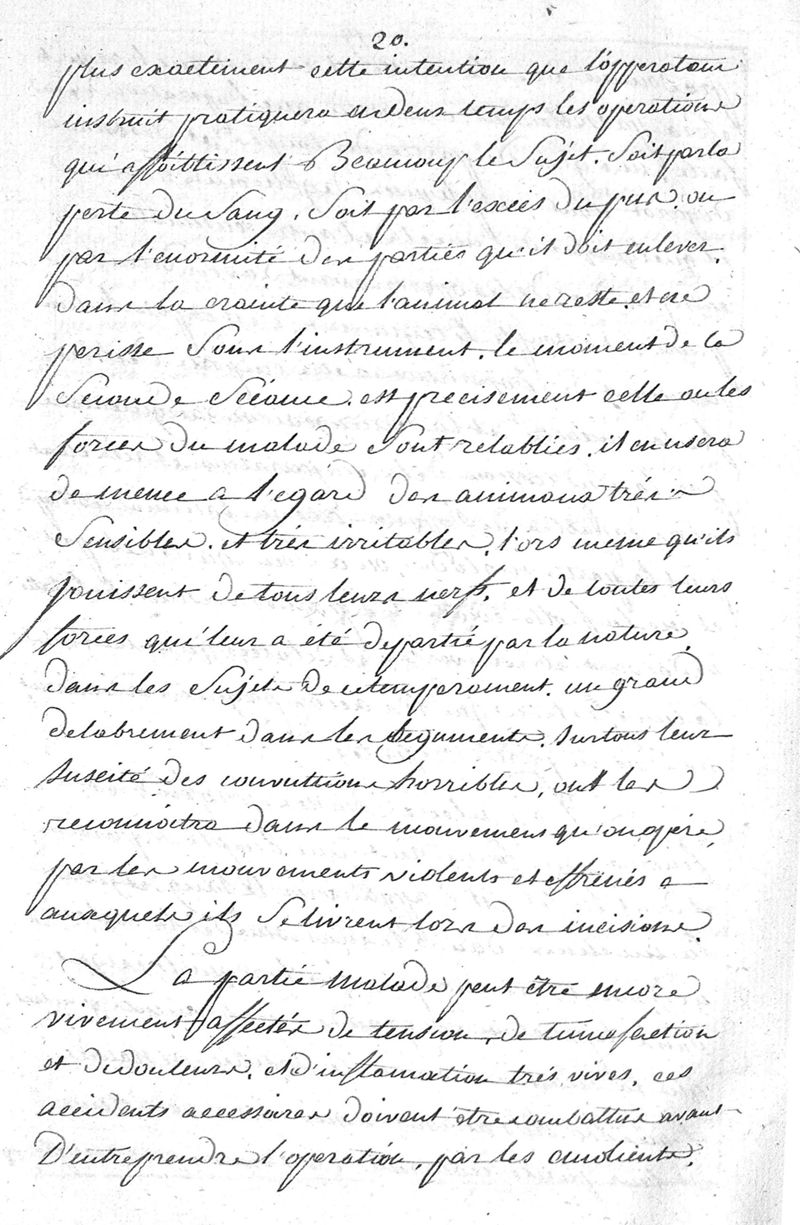 20.
plus exactement cette intention que l'opperateur
instruit pratiquera en deux temps les operations
qui affoiblissent Beaucoup le Sujet. Soit par la
perte du Sang, Soit par l'excés du pus. ou
par l'enormité des parties qu'il doit enlever.
dans la crainte que l'animal ne reste. et ne
perisse Sous l'instrument. le moment de la
Seconde Séeance. est precisement celle ou les
forces du malade Sont retablies. il en usera
de meme a l'egard des animaux trés
Sensibles. et trés irritables, lors meme qu'ils
jouissent de tous leurs nerfs, et de toutes leurs
forces qui leur a été departie par la nature.
dans les Sujets de ce temperament. un grand
delabrement dans les teguments. surtous leur
suscité des convultions horribles, on les
reconnoitra dans le mouvement qu'on opére,
par les mouvements violents et effrenés a
auxquels ils Se livrent lors des incisions.
La partie malade peut être encore
vivement affectée de tension, de tumefaction
et de douleurs. et d'inflamation trés vives. ces
accidents accessoires doivent être combattus avant
D'entreprendre l'operation, par les emolients.